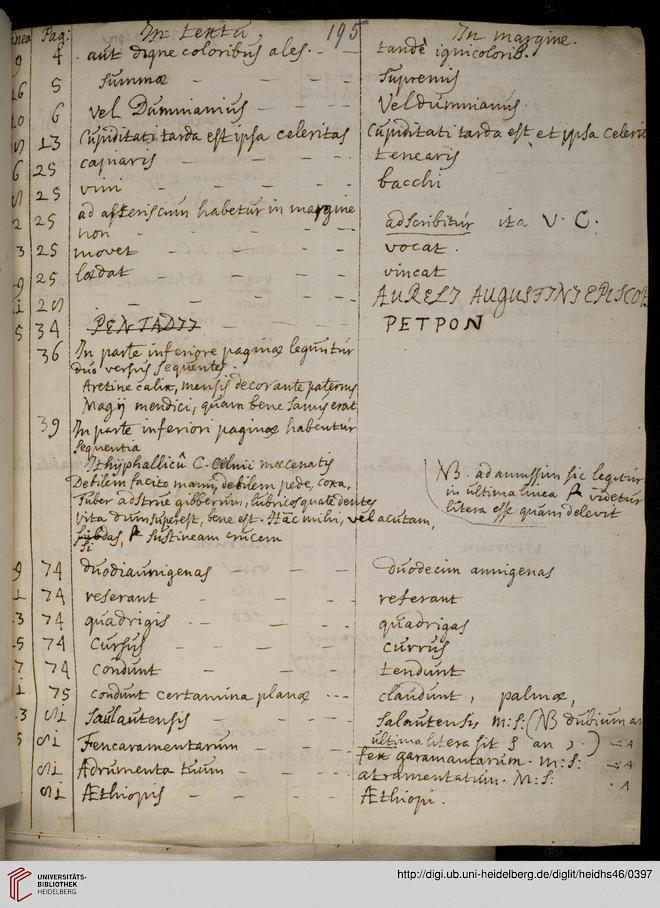 linea Pag: In textu 195 In margine.
9 4 aut digne coloribus ales. - - tandē ignicolorib.
16 5 summæ - - - - supremis
10 6 vel Dumnianus - - - Veldumnianus.
13 Cupiditati tarda est ipsa celeritas Cupiditati tarda est et ipsa celeri
6 25 capnaris - - - - tenearis
25 viri - - - - bacchi
2 25 ad asteriscum habetur in margine
non - - - - adscribitur ita V. C.
3 25 movet - - - - vocat.
9 25 lædat - - - - vincat
AURELI AUGUSTINI EPISCOP
5 34 PENTADII - - - PETPON
36 In parte inferiore paginæ leguntur
duo versus sequentes.
Aretine calix, mensis decorante paternis
Magij mendici, quam bene sanus erat
39 In parte inferiori paginæ habentur
sequentia
Ithyphallicū C. Cilnii mæcenatis
Debilem facito manu, debilem pede, coxa,
Tuber adstrue gibberum, lubricos quate dentes
Vita dum superest, bene est. Hāc mihi, vel acutam,
Si sustineam crucem
NB. adamussim sic legitur
in ultima linea videtur
litera esse quam delevit
9 74 duodiaunigenas - - - duodecim annigenas
1 74 reserant - - - - referant
3 74 quadrigis - - - - quadrigas
5 74 Cursus - - - - currus
7 74 condunt - - - - tendunt
1 75 condunt certamina planæ - - - claudunt, palmæ,
3 Saulautensis - - - Salautensis m: s: (NB dubium an
ultima litera sit s an ) - A
5 Fencaramentarum - - - fex garamantarum. m: s: - A
Adrumenta tuum - - - atramentatum. M: S: . A
Æthiopis - - - - Æthiopi.
UNIVERSITÄTS-
BIBLIOTHEK
HEIDELBERG
http://digi.ub.uni-heidelberg.de/diglit/heidhs46/0397